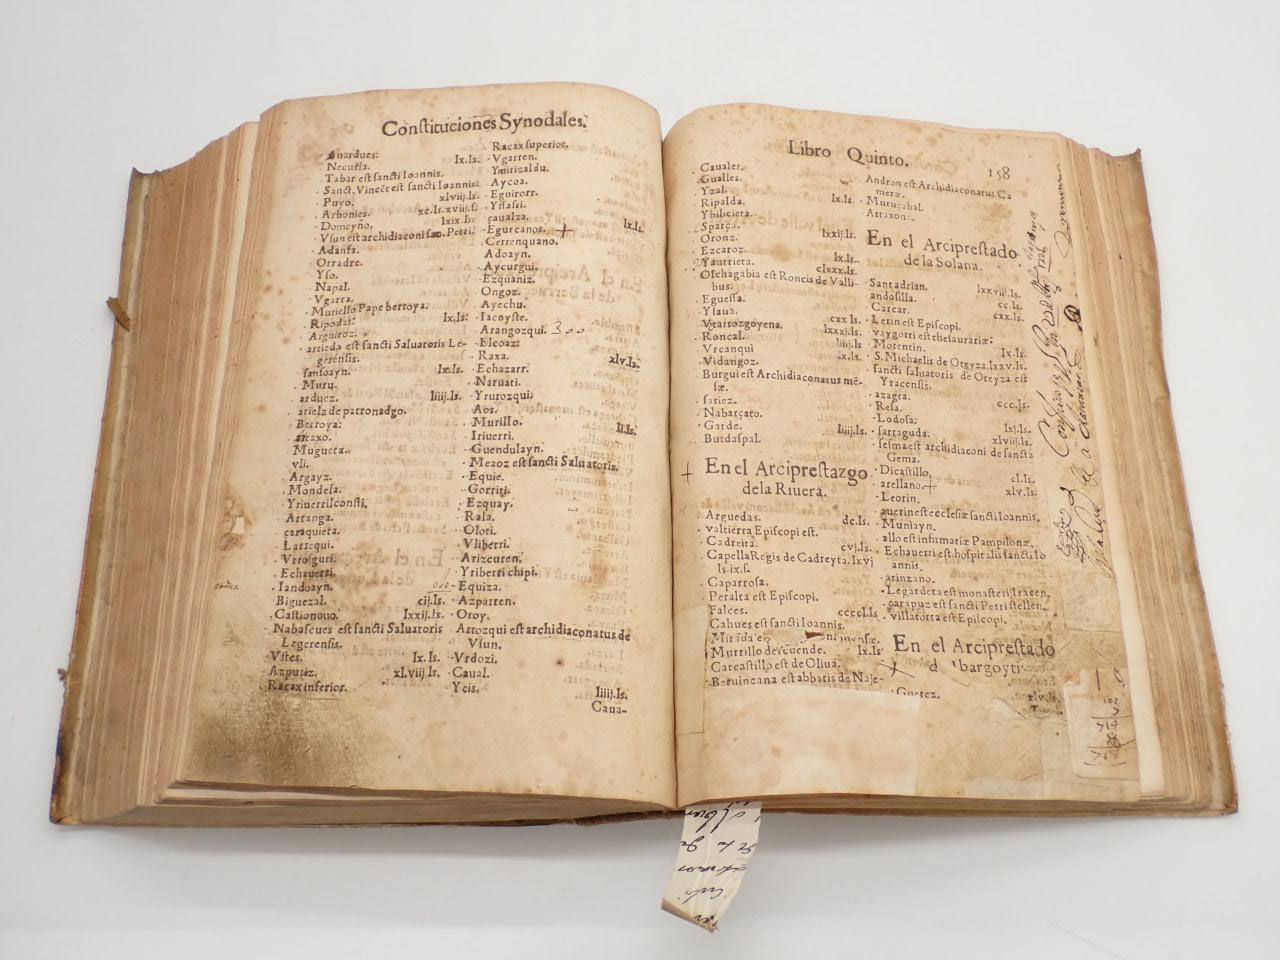 Constituciones Synodales.
Anardues:
Necuesa. lx.ls.
Tabar est sancti Ioannis.
Sanct. Vincẽt est sancti Ioannis:
Puyo. xlviij.ls.
Arbonies. xc.ls.xviij.s:
Domeyño. lxix.ls:
Vsun est archidiaconi sãc. Petri.
Adansa.
Orradre.
Yso.
Napal.
Vgarra.
Muriello Pape berroya:
Ripodas: lx.ls:
Arguiroz.
artieda est sancti Saluatoris Le-
gerensis.
sansoayn. lx.ls.
Muru.
arduez. liiij.ls.
arielz de patronadgo.
Berroya:
artaxo.
Mugueta.
vli.
Argayz.
Mondela.
Yriuerrilconsti.
Artanga.
çaraquieta.
Larequi.
Vrrosguti.
Echauerri.
Iandoayn.
Biguezal. cij.ls.
Castionouo. lxxij.ls.
Nabascues est sancti Saluatoris
Legerensis.
Vstes. lx.ls.
Azpuriz. xl.viij ls.
Racax inferior.
Racax superior.
Vgarren.
Ymirizaldu.
Aycoa.
Eguirorr.
Yssassi.
çaualza. lx.ls.
Egurcanos. +
Cerrenquano.
Adoayn.
Aycurgui.
Ezquaniz.
Ongoz.
Ayechu.
Iacoyste.
Arangozqui. 300
Elcoaz:
Raxa. xlv.ls.
Echazarr.
Naruati.
Yrurozqui:
Aos.
Murillo. li.ls.
Iriuerri.
Guendulayn.
Meaoz est sancti Saluatoris.
Equie.
Gorriti:
Ezquay.
Rala.
Olori.
Vliberri.
Arizcuren.
Yriberri chipi.
Equiza.
Azparren.
Oroy.
Artozqui est archidiaconatus de
Vsun.
Vrdozi.
Caual.
Ycis. liiij.ls.
Caua-
Libro Quinto.
158
Cauales.
Gualles.
Yzal.
Ripalda. lx.ls.
Ybilcieta.
Sparça.
Oronz. lxxij.ls.
Ezcaroz.
Yaurrieta. lx.ls.
Ochagabia est Roncis de Valli clxxx.ls.
bus.
Eguessa.
Yslaua.
Vztarrozgoyena. cxx ls.
Roncal. lxxxj.ls.
Vrcanqui liiij ls
Vidangoz. .x.ls.
Burgui est Archidiaconatus mẽ-
sæ.
sariez.
Nabarçato.
Garde. liiij.ls.
Burdaspal.
+ En el Arciprestazgo
de la Riuera.
Arguedas. dc.ls.
valtierra Episcopi est.
Cadreita. cvj.ls.
Capella Regis de Cadreyta. lxvj
ls.ix.s.
Caparrosa.
Peralta est Episcopi.
Falces. cccc ls.
Cahues est sancti Ioannis.
Murrillo desuende. lx.ls
Carcastillo est de Oliua.
Beruincana est abbatis de Naje-
Andron est Archidiaconatus Ca
meræ.
Muruçabal.
Artaxona.
En el Arciprestado
de la Solana.
Santadrian. lxxvij.ls.
andosilla. cc.ls.
Carcar. cxx.ls.
Lerin est Episcopi.
vaygorri est thesaurariæ:
Morentin. lx.ls.
S. Michaelis de Oteyza. lxxv.ls.
sancti saluatoris de Oteyza est
Yracensis.
azagra.
Resa. ccc.ls.
Lodosa:
sartaguda. lxj.ls.
sesma est archidiaconi de sancta xlviij.ls.
Gema.
Dicastillo,
arellano. + cl.ls.
Leorin. xlv.ls.
aucrinest ecclesiæ sancti Ioannis.
Muniayn.
allo est infirmariæ Pampilonæ,
Echauerri est hospitalis sancti Io
annis.
arinzano.
Legardeta est monasterij Iracen,
çarapuz est sancti Petri stellen.
villatorta est Episcopi.
En el Arciprestado
Guerez. xlv.ls.